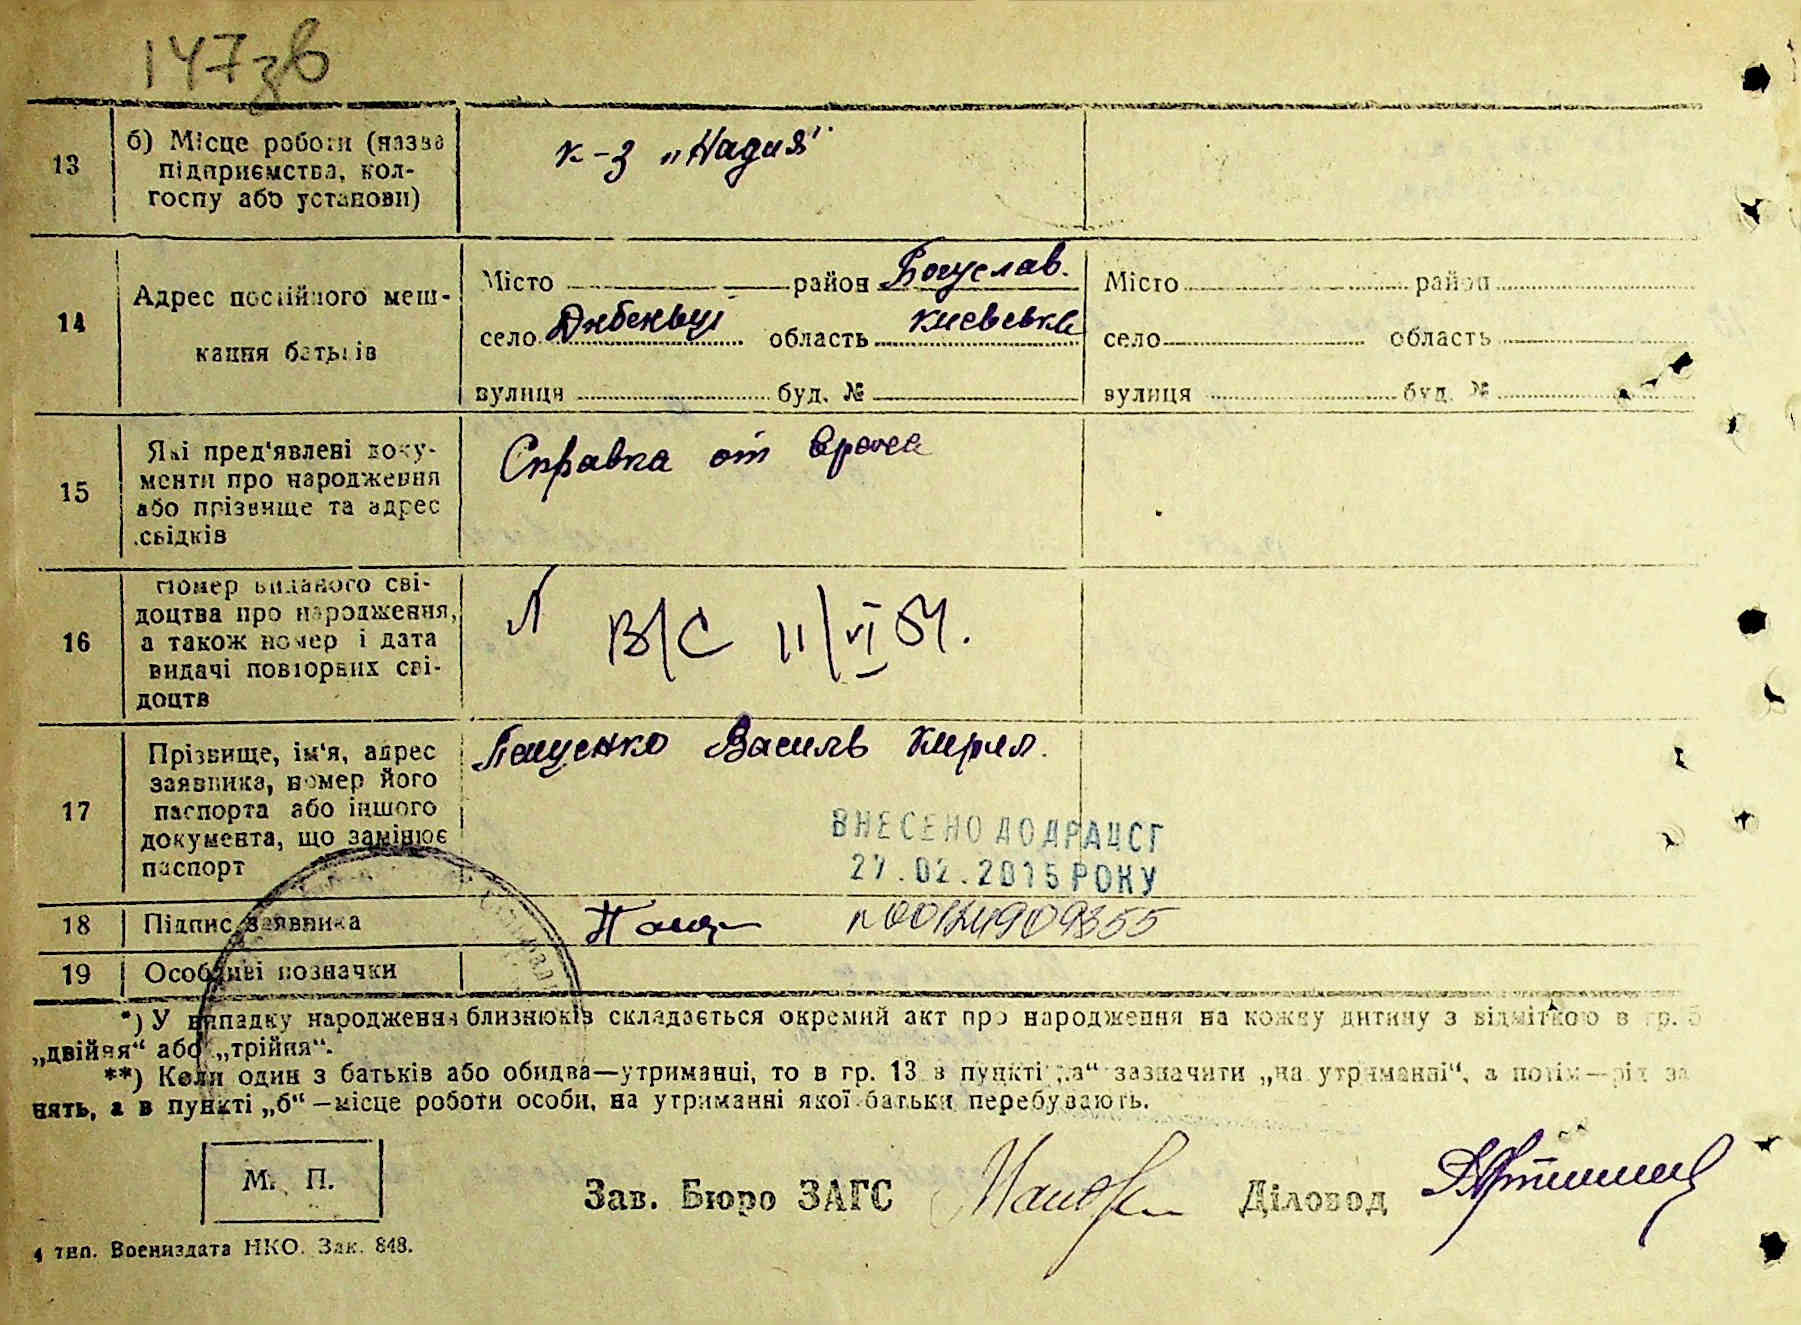 147зв
13
б) Місце роботи (назва
підприємства, кол-
госпу або установи)
к-з „Надия"
14
Адрес постійного меш-
кання батьків
Місто район Богуслав.
село Дибенці область Киевська
вулиця буд. №
Місто район
село область
вулиця буд. №
15
Які пред'явлені доку-
менти про народження
або прізвище та адрес
свідків
Справка от врача
16
Номер виданого сві-
доцтва про народження,
а також номер і дата
видачі повторних сві-
доцтв
В/С 11/VI 54.
17
Прізвище, ім'я, адрес
заявника, номер його
паспорта або іншого
документа, що замінює
паспорт
Пащенко Василь Кирил.
ВНЕСЕНО ДО ДРАЦСГ
27.02.2015 РОКУ
18
Підпис заявника
Пащ
19
Особливі позначки
*) У випадку народження близнюків складається окремий акт про народження на кожну дитину з відміткою в гр. 5
„двійня“ або „трійня“.
**) Коли один з батьків або обидва—утриманці, то в гр. 13 в пункті „а“ зазначити „на утриманні“, а потім—рід за
нять, а в пункті „б“ —місце роботи особи, на утриманні якої батьки перебувають.
М. П.
Зав. Бюро ЗАГС
Діловод
4 тип. Воениздата НКО. Зак. 848.